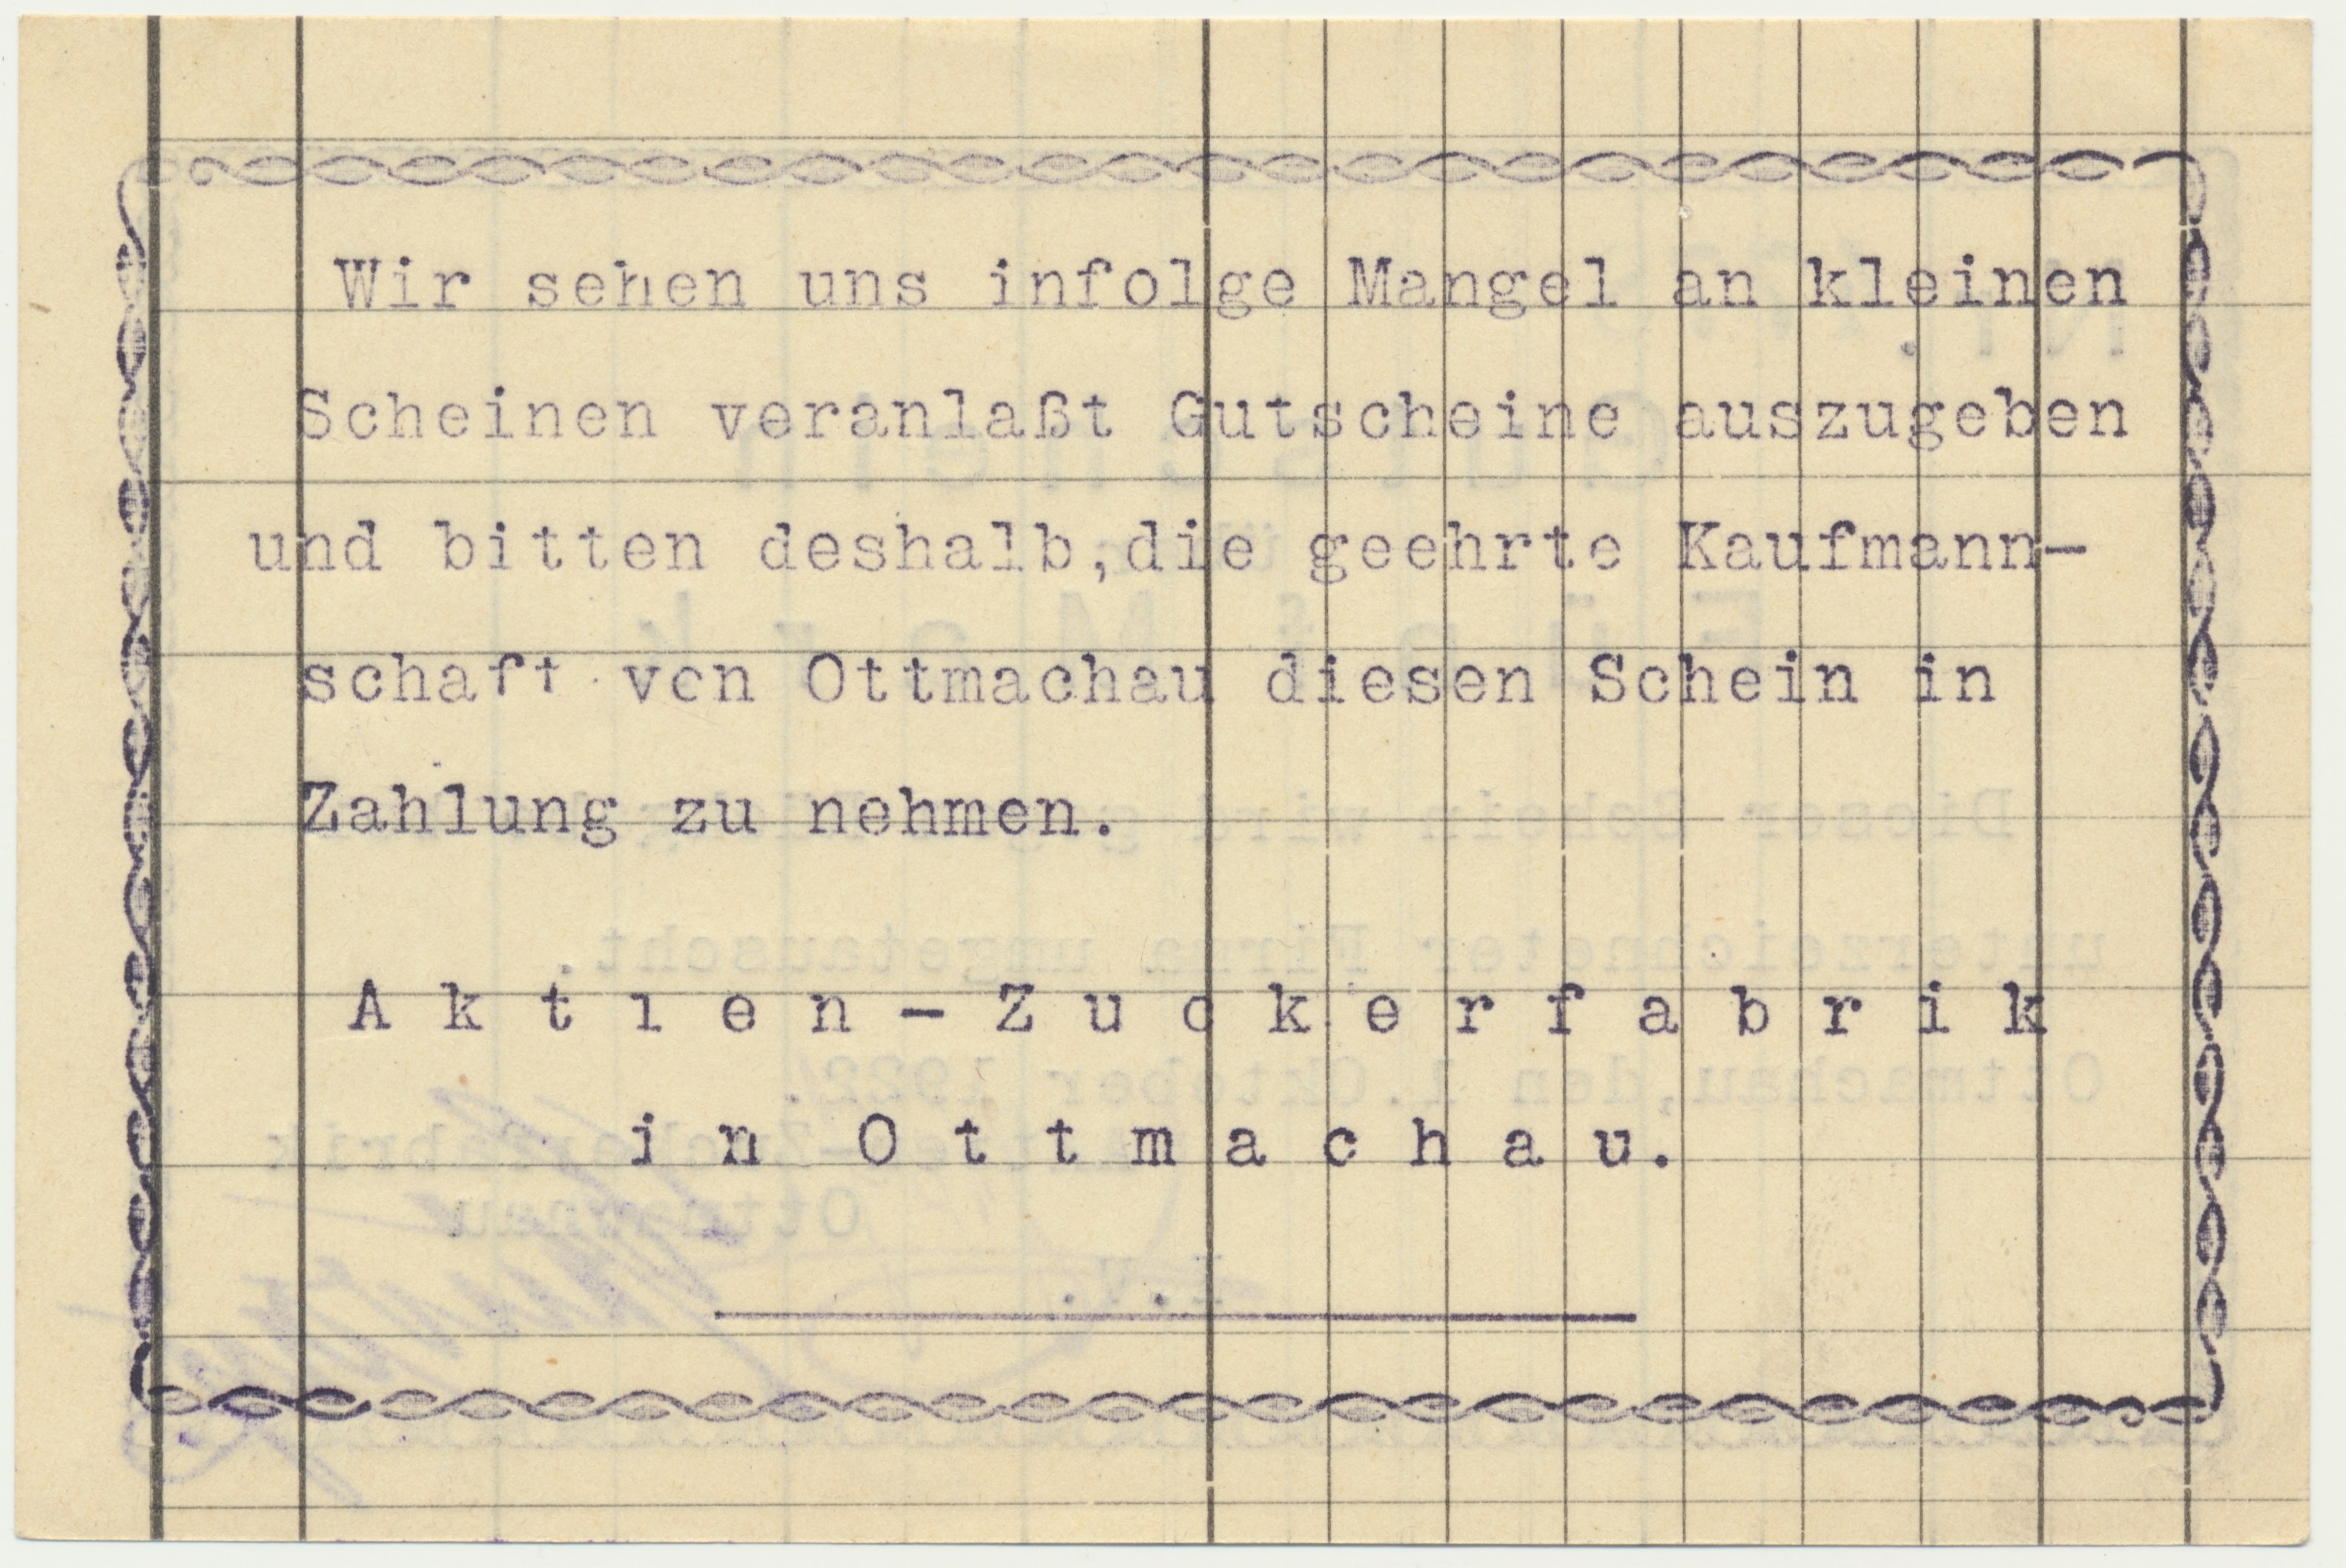 Wir sehen uns infolge Mangel an kleinen
Scheinen veranlaßt Gutscheine auszugeben
und bitten deshalb,die geehrte Kaufmann-
schaft von Ottmachau diesen Schein in
Zahlung zu nehmen.
Aktien-Zuckerfabrik
in Ottmachau.